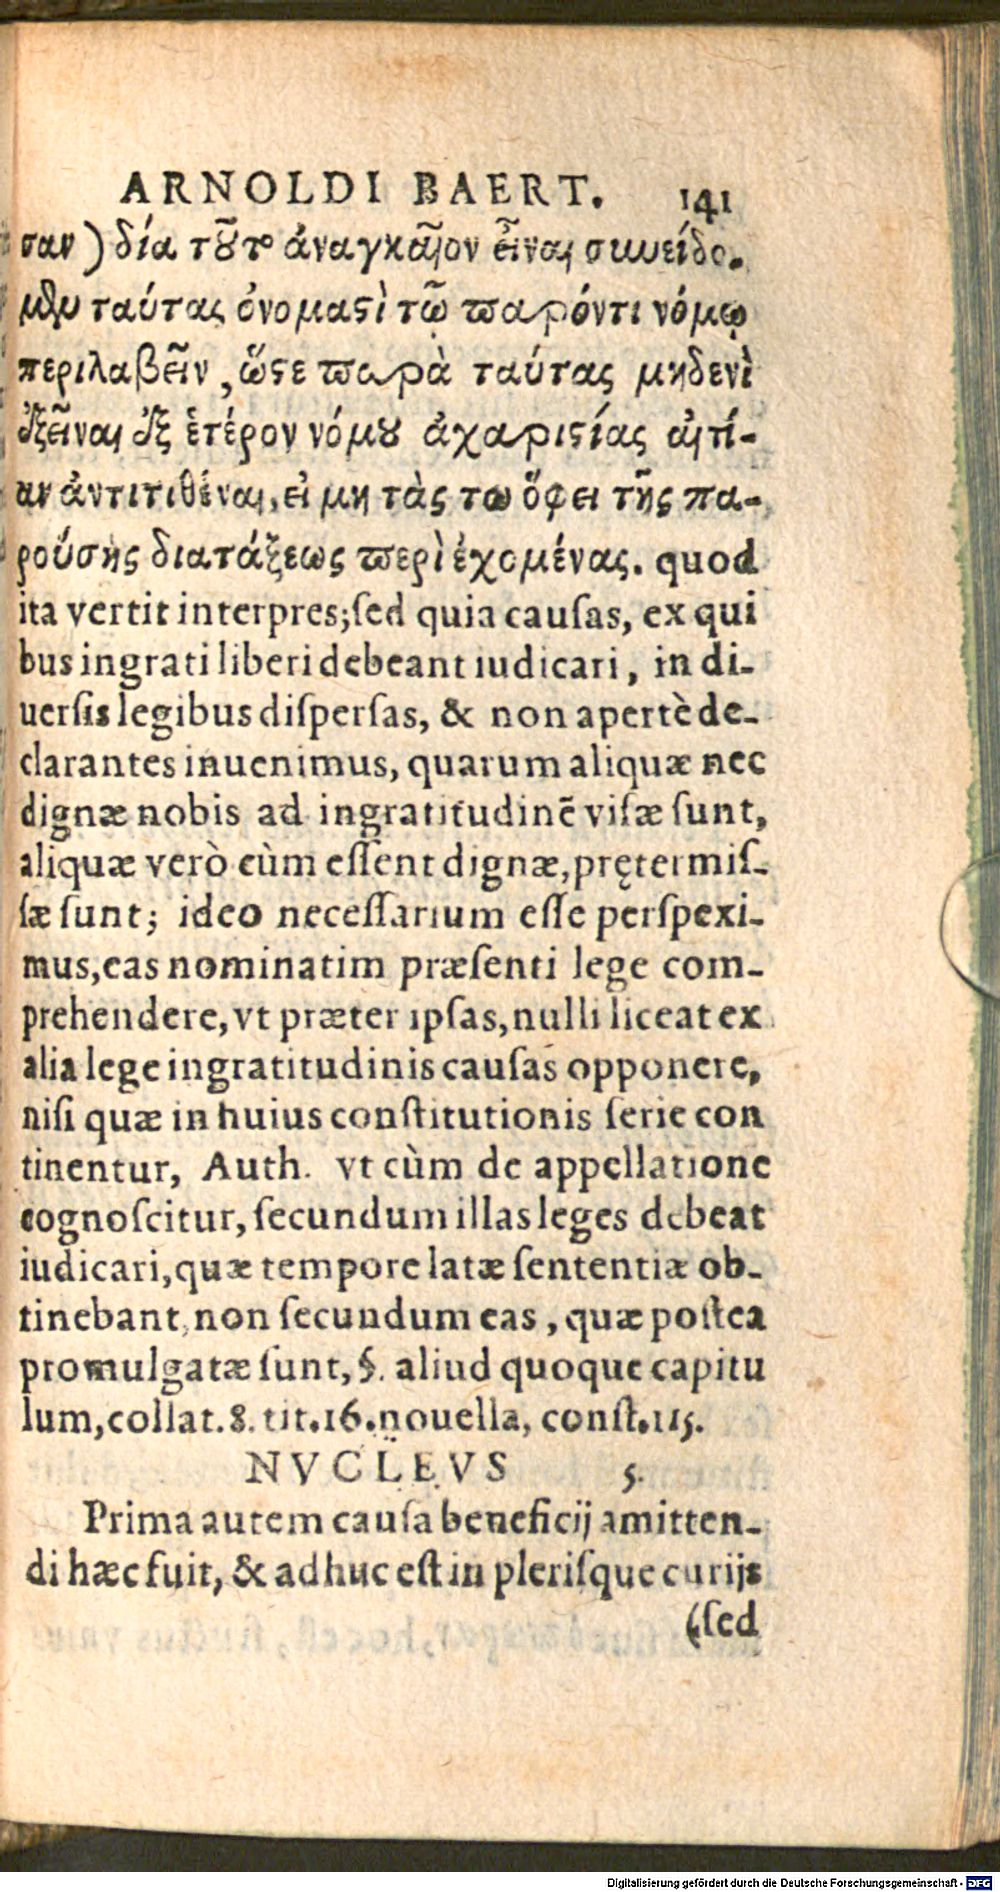 ARNOLDI BAERT. 141
σαν) δία τοῦτο ἀναγκαῖον εἶναι συνείδο-
μεν ταύτας ὀνομαστὶ τῷ παρόντι νόμῳ
περιλαβεῖν, ὥστε παρὰ ταύτας μηδενὶ
ἐξεῖναι ἐξ ἑτέρον νόμου ἀχαριστίας αἰτί-
αν ἀντιτιθέναι, εἰ μη τὰς τω ὕφει τῆς πα-
ρούσης διατάξεως περὶ ἐχομένας. quod
ita vertit interpres; ſed quia cauſas, ex qui
bus ingrati liberi debeant iudicari, in di-
uerſis legibus diſperſas, & non apertè de-
clarantes inuenimus, quarum aliquæ nec
dignæ nobis ad ingratitudinẽ viſæ ſunt,
aliquæ verò cùm eſſent dignæ, prętermiſ-
ſæ ſunt; ideo neceſſarium eſſe perſpexi-
mus, eas nominatim præſenti lege com-
prehendere, vt præter ipſas, nulli liceat ex
alia lege ingratitudinis cauſas opponere,
niſi quæ in huius conſtitutionis ſerie con
tinentur, Auth. vt cùm de appellatione
cognoſcitur, ſecundum illas leges debeat
iudicari, quæ tempore latæ ſententiæ ob-
tinebant, non ſecundum eas, quæ poſtea
promulgatæ ſunt, §. aliud quoque capitu
lum, collat. 8. tit. 16. nouella, conſt. 115.
NVCLEVS 5.
Prima autem cauſa beneficij amitten-
di hæc fuit, & adhuc eſt in pleriſque curijs
(ſed
Digitalisierung gefördert durch die Deutsche Forschungsgemeinschaft - DFG